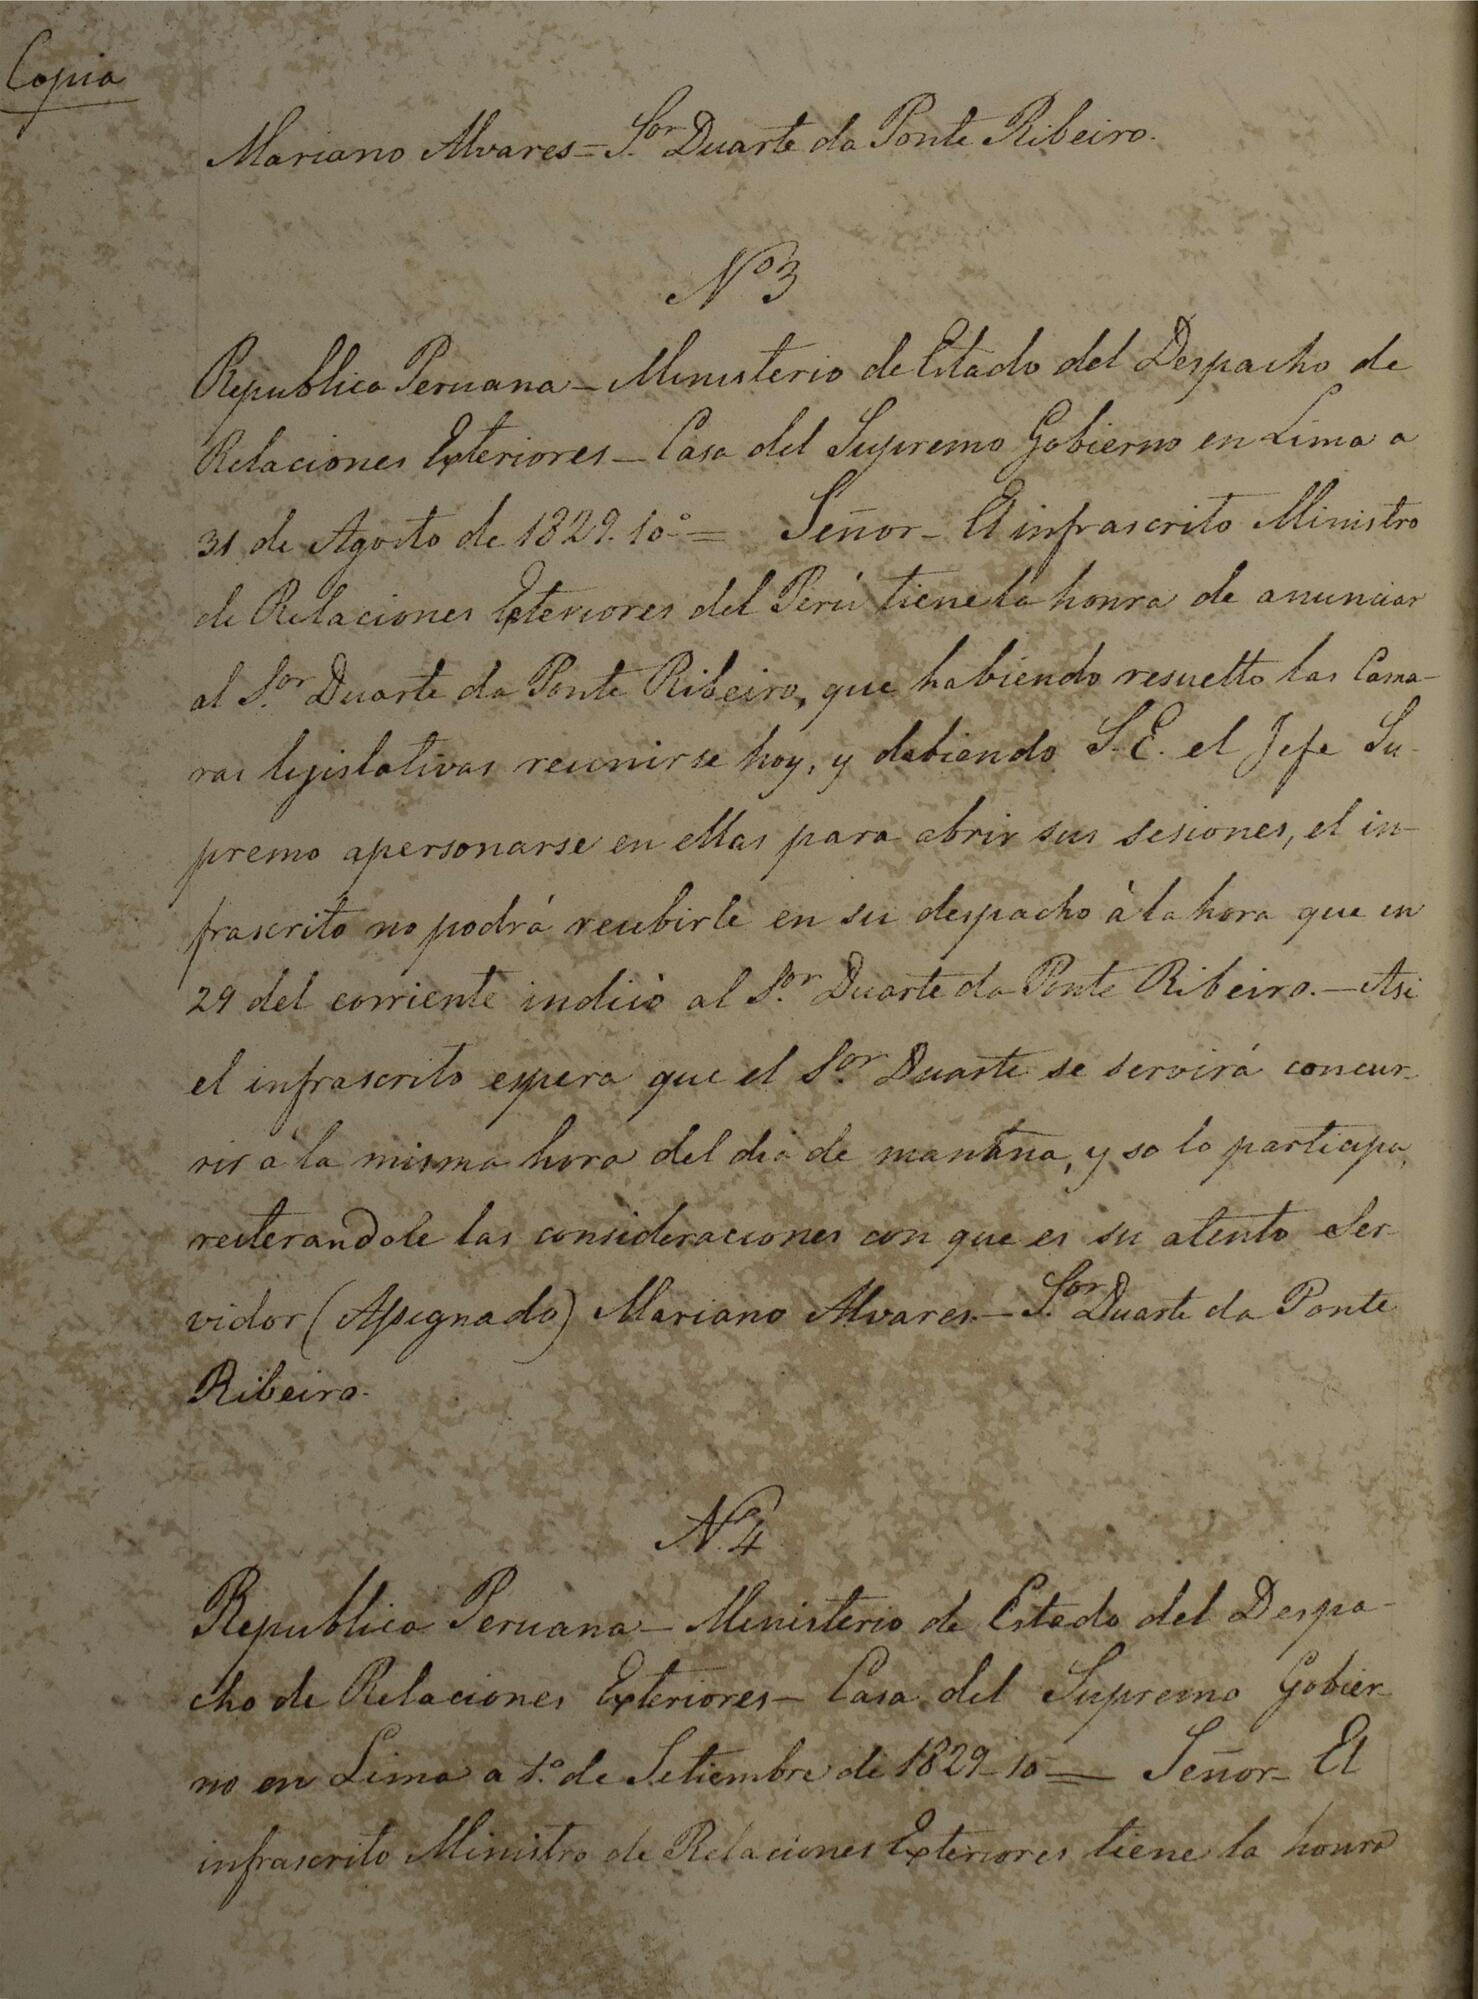 Copia
Mariano Alvares = S.or Duarte da Ponte Ribeiro.
Nº 3
Republica Peruana – Ministerio de Estado del Despacho de
Relaciones Exteriores – Casa del Supremo Gobierno en Lima a
31 de Agosto de 1829. 10º = Señor – El infrascrito Ministro
de Relaciones Exteriores del Perú tiene la honra de anunciar
al S.or Duarte da Ponte Ribeiro, que habiendo resuelto las Cama-
ras legislativas reunirse hoy, y debiendo S. E. el Jefe Su-
premo apersonarse en ellas para abrir sus sesiones, el in-
frascrito no podrá recibirle en su despacho à la hora que en
29 del corriente indicò al S.or Duarte da Ponte Ribeiro. – Asi
el infrascrito espera que el S.or Duarte se servirá concur-
rir à la misma hora del dia de mañana, y so lo participa,
reiterandole las consideraciones con que es su atento Ser-
vidor (Assignado) Mariano Alvares. – S.or Duarte da Ponte
Ribeiro.
Nº 4
Republica Peruana – Ministerio de Estado del Despa-
cho de Relaciones Exteriores – Casa del Supremo Gobier-
no en Lima a 1.º de Setiembre de 1829 – 10 = Señor – El
infrascrito Ministro de Relaciones Exteriores tiene la honra